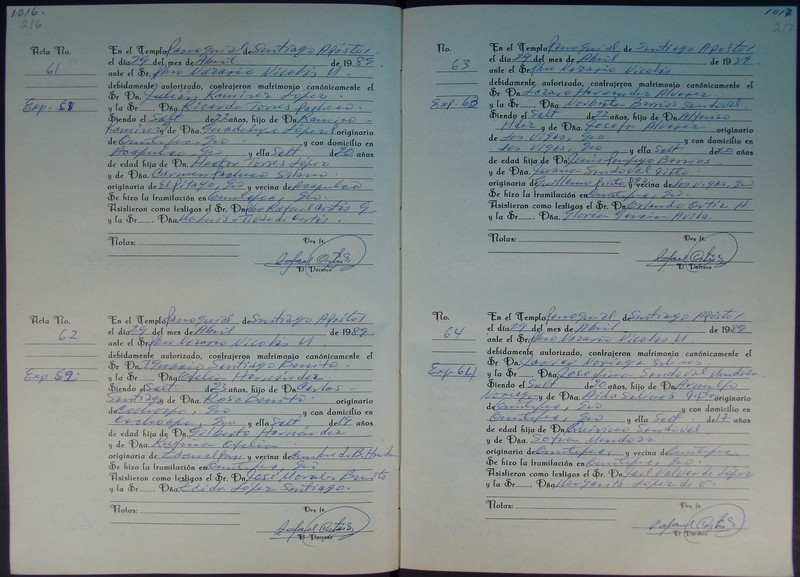 1016.
216
Acta No.
61
Exp. 61
En el Templo Parroquial de Santiago Apóstol
el día 29 del mes de Abril de 1989
ante el Sr. Pbro Nazario Nicolás M
debidamente autorizado, contrajeron matrimonio canónicamente
el Sr. Dn. Julian Ramirez López
y la Sr. Dña. Ricarda Torres Pacheco
Siendo el Solt de 22 años, hijo de Dn. Ramiro
Ramirez y de Dña. Guadalupe López originario
de Omitepec, Gro y con domicilio en
Acapulco Gro y ella Solt de 20 años
de edad hija de Dn. Hector Torres López
y de Dña. Carmen Pacheco Solano
originaria de El Pitayo, Gro y vecina de Acapulco
Se hizo la tramitación en Ometepec, Gro.
Asistieron como testigos el Sr. Dn. Rafael Ortís G
y la Sr. Dña. de Ortís
Notas:
Doy fe.
Rafael Ortís G
El Párroco
Acta No.
62
Exp 89.
En el Templo Parroquial de Santiago Apóstol
el día 29 del mes de Abril de 1989
ante el Sr. Pbro Nazario Nicolás M
debidamente autorizado, contrajeron matrimonio canónicamente
el Sr. Dn. Ignacio Santiago Benito
y la Sr. Dña. Ofelia Hernández
Siendo el Solt de 22 años, hijo de Dn. Carlos
Santiago y de Dña. Rosa Benito originario
de Cochoapa, Gro y con domicilio en
Cochoapa, Gro y ella Solt de 19 años
de edad hija de Dn. Gilberto Hernández
y de Dña. Regina Ofelia
originaria de y vecina de
Se hizo la tramitación en Ometepec, Gro
Asistieron como testigos el Sr. Dn. José Morales Benito
y la Sr. Dña. Elida López Santiago.
Notas:
Doy fe.
Rafael Ortís G
El Párroco
1017
217
No.
63
Exp. 63
En el Templo Parroquial de Santiago Apóstol
el día 29 del mes de Abril de 1989
ante el Sr. Pbro Nazario Nicolás
debidamente autorizado, contrajeron matrimonio canónicamente
el Sr. Dn. Lázaro Hernández Alvarez
y la Sr. Dña. Norberta Berrios Sandoval
Siendo el Solt de 22 años, hijo de Dn. Alfonso
Hdez y de Dña. Josefa Alvarez originario
de Los Vigas, Gro y con domicilio en
Los Vigas, Gro y ella Solt de 20 años
de edad hija de Dn. Berrios
y de Dña. Juana Sandoval
originaria de y vecina de Los Vigas, Gro
Se hizo la tramitación en Ometepec, Gro.
Asistieron como testigos el Sr. Dn. Orlando Ortíz H
y la Sr. Dña. Gloria García Avila
Notas:
Doy fe.
Rafael Ortís G
El Párroco
Acta No.
64
Exp 64
En el Templo Parroquial de Santiago Apóstol
el día 29 del mes de Abril de 1989
ante el Sr. Pbro Nazario Nicolás M
debidamente autorizado, contrajeron matrimonio canónicamente
el Sr. Dn. Javier Noriega Salinas
y la Sr. Dña. Sandoval Mendoza
Siendo el Solt de 20 años, hijo de Dn. Arnulfo
Noriega y de Dña. Aida Salinas originario
de Ometepec, Gro y con domicilio en
Ometepec, Gro y ella Solt de 17 años
de edad hija de Dn. Quirino Sandoval
y de Dña. Sofia Mendoza
originaria de Ometepec, y vecina de Ometepec
Se hizo la tramitación en Ometepec, Gro.
Asistieron como testigos el Sr. Dn. López
y la Sr. Dña. Margarita López de V.
Notas:
Doy fe.
Rafael Ortís G
El Párroco